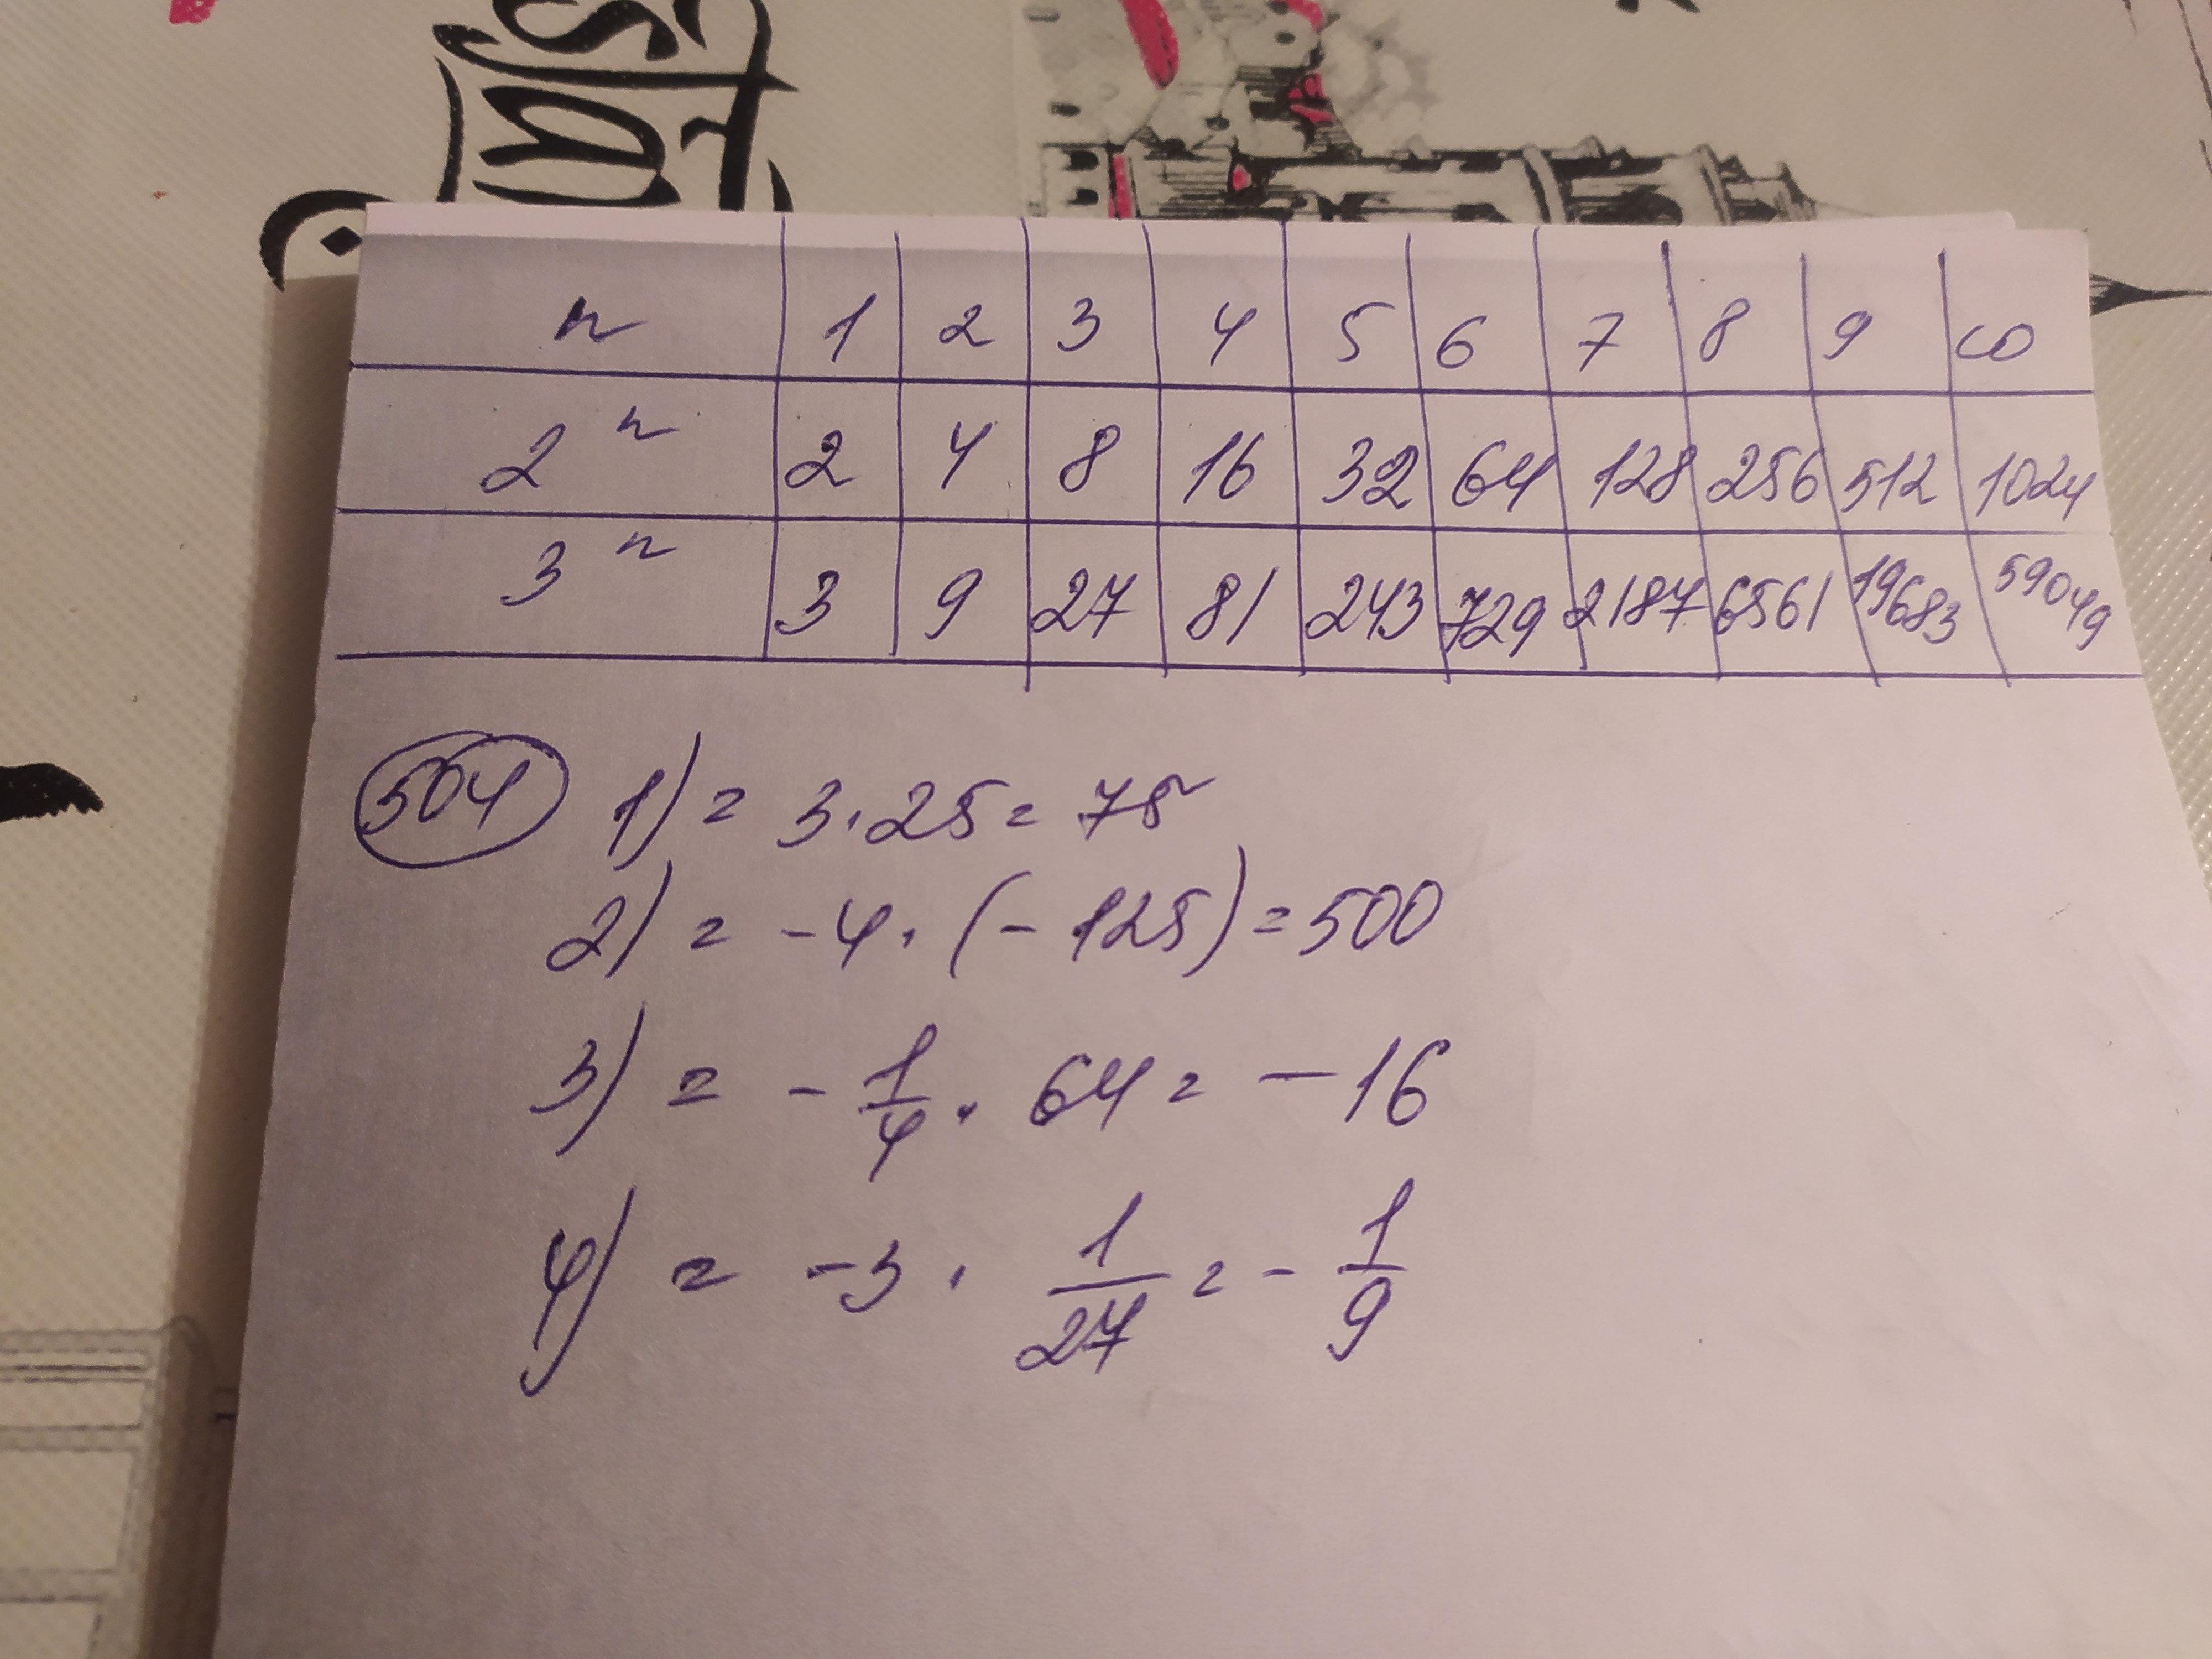 n 1 2 3 4 5 6 7 8 9 10
2ⁿ 2 4 8 16 32 64 128 256 512 1024
3ⁿ 3 9 27 81 243 729 2187 6561 19683 59049
504 1) = 3·25 = 75
2) = -4·(-125) = 500
3) = - 1/4 · 64 = -16
4) = -3 · 1/27 = - 1/9